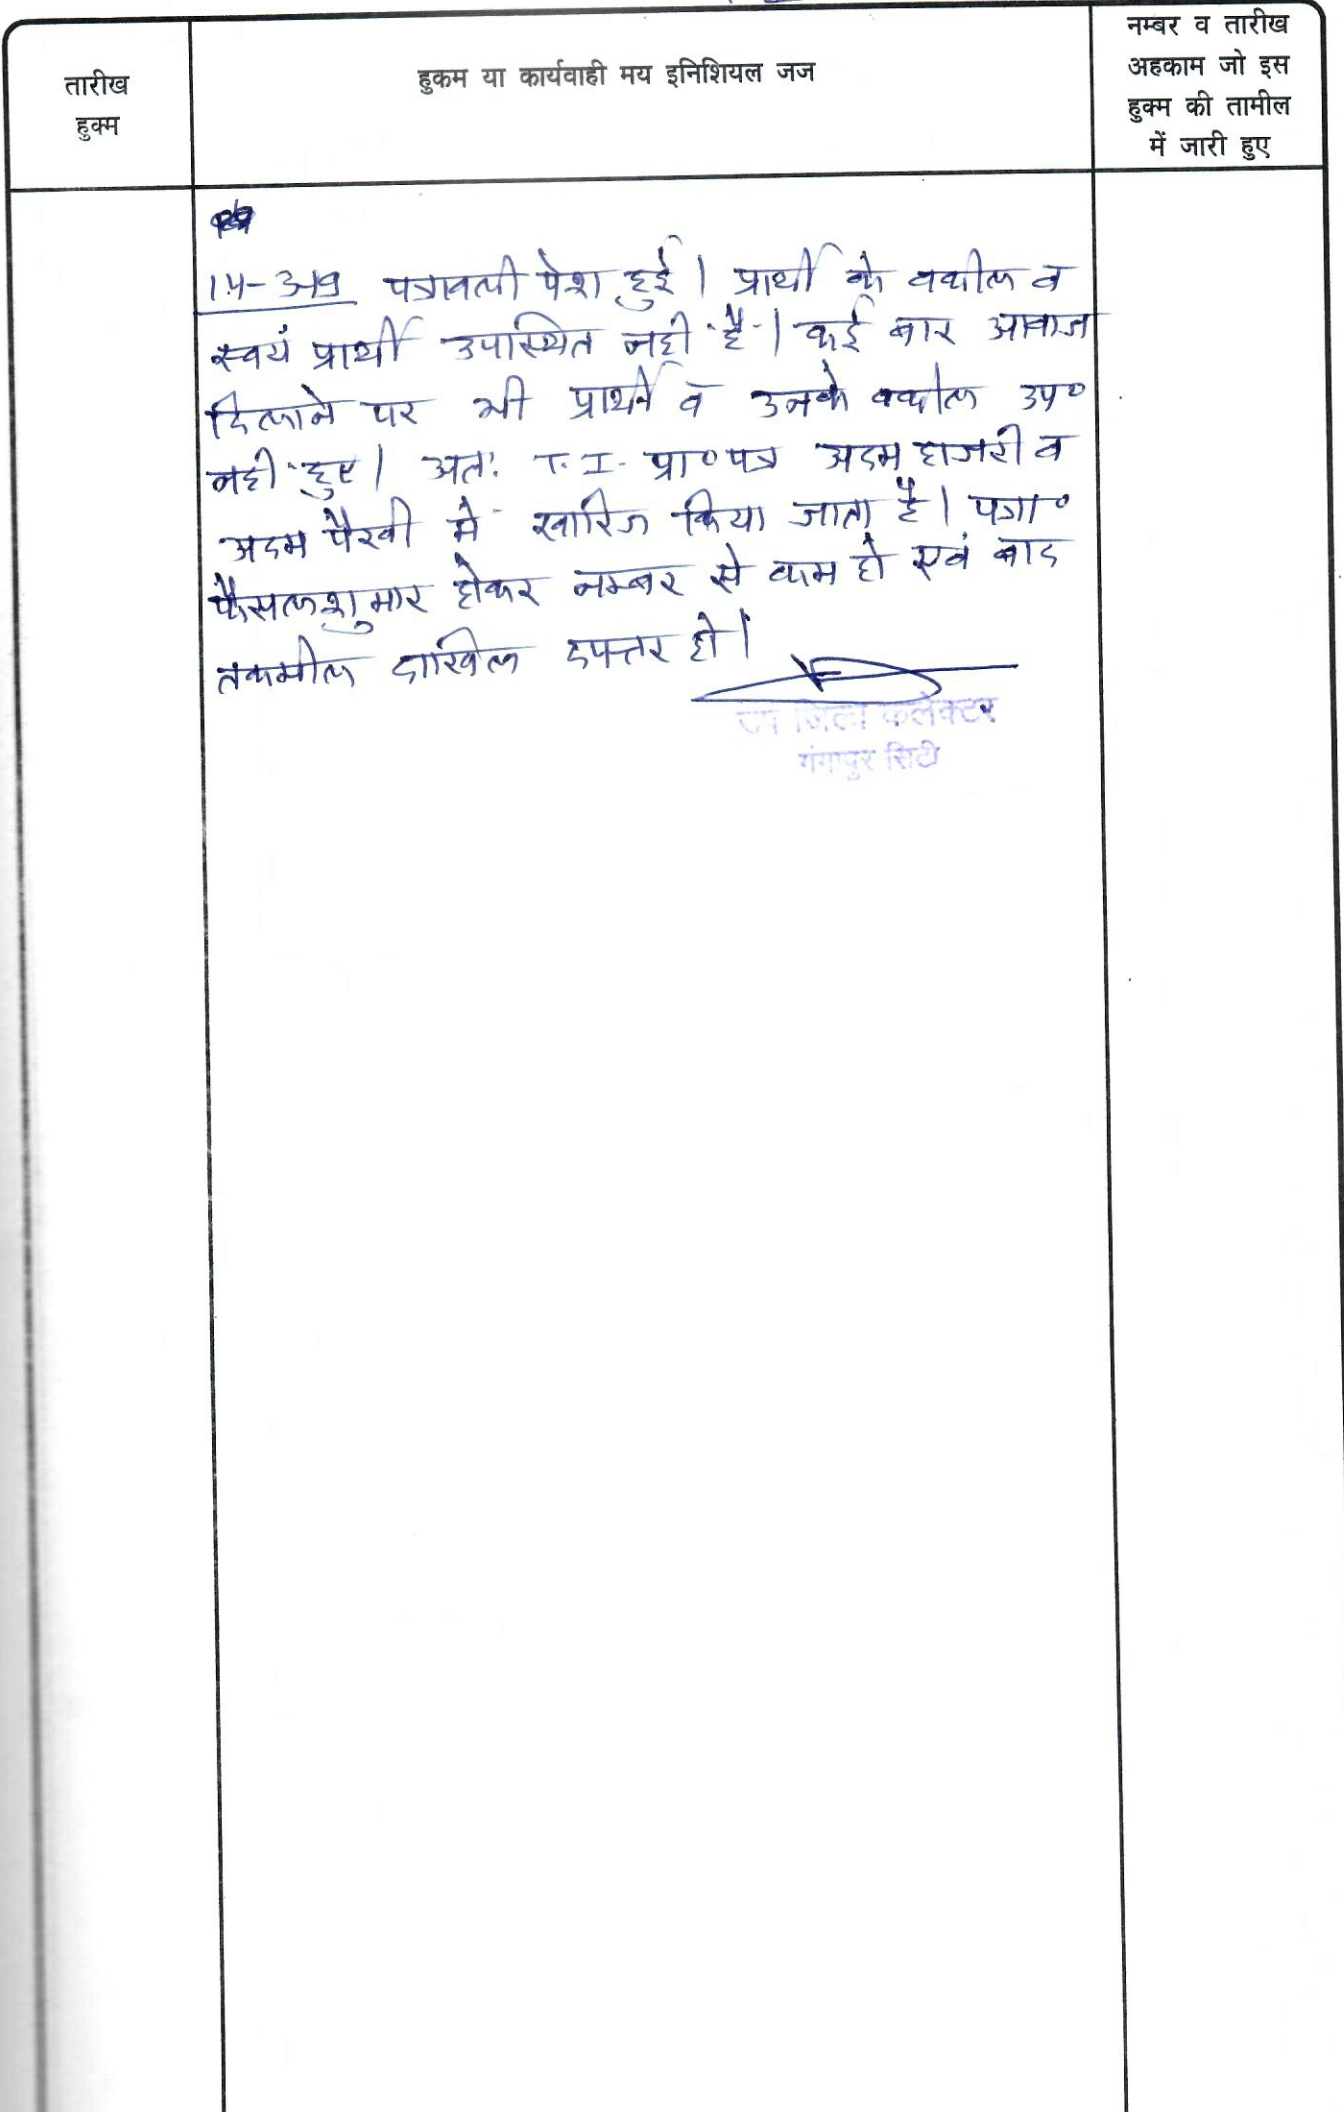 तारीख
हुक्म
हुकम या कार्यवाही मय इनिशियल जज
नम्बर व तारीख
अहकाम जो इस
हुक्म की तामील
में जारी हुए
पत्रावली पेश हुई। प्रार्थी के वकील व
स्वयं प्रार्थी उपस्थित नही है। कई बार आवाज
दिलाने पर भी प्रार्थी व उनके वकील उप०
नही हुए। अतः T.I. प्रा०पत्र अदम हाजरी व
अदम पैरवी में खारिज किया जाता है। पत्रा०
फैसलशुमार होकर नम्बर से कम हो एवं बाद
तकमील दाखिल दफ्तर हो।
उप जिला कलेक्टर
गंगापुर सिटी